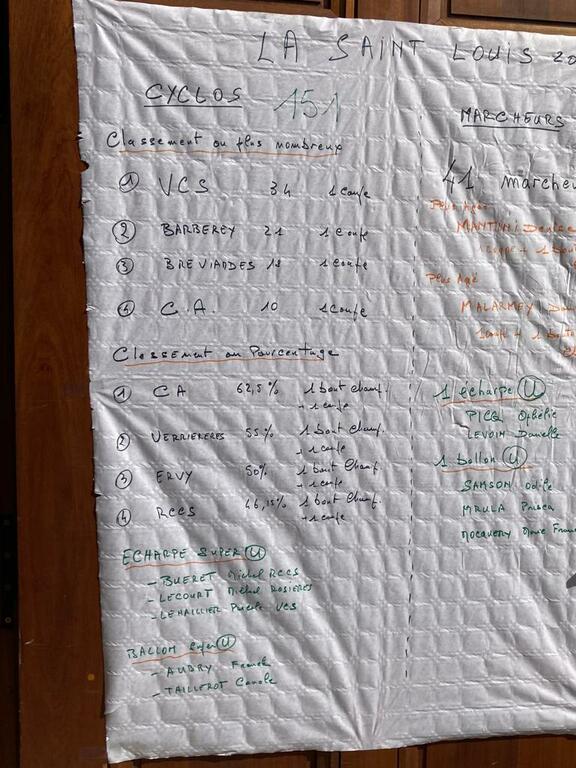 LA SAINT LOUIS 20
CYCLOS 151
Classement au plus nombreux
1 VCS 34 1 coupe
2 BARBEREY 21 1 coupe
3 BREVIANDES 1 coupe
4 C.A. 10 1 coupe
Classement au Pourcentage
1 CA 62,5% 1 bout champ.
+ 1 coupe
2 VERRIERERES 55% 1 bout Champ.
+ 1 coupe
3 ERVY 50% 1 bout Champ.
+ 1 coupe
4 RCCS 46,15% 1 bout Champ.
+ 1 coupe
ECHARPE SUPER U
- BUERET Michel RCCS
- LECOURT Michel ROSIERES
- LEHAILLIER VCS
BALLON super U
- AUBRY Franck
- TAILLEROT Carole
MARCHEURS
41 marcheu
Plus Agée
MANTINI Denise
1 coupe + 1
Plus Agé
MALARMEY
1 coupe + 1
1 écharpe U
PICQ Ophélie
LEVOIN Danielle
1 ballon U
SAMSON Odile
MRULA Prisca
MOCQUERY Marie Fran